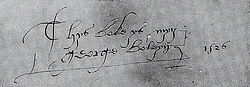 Thys boke ys myn
george Boleyn 1526